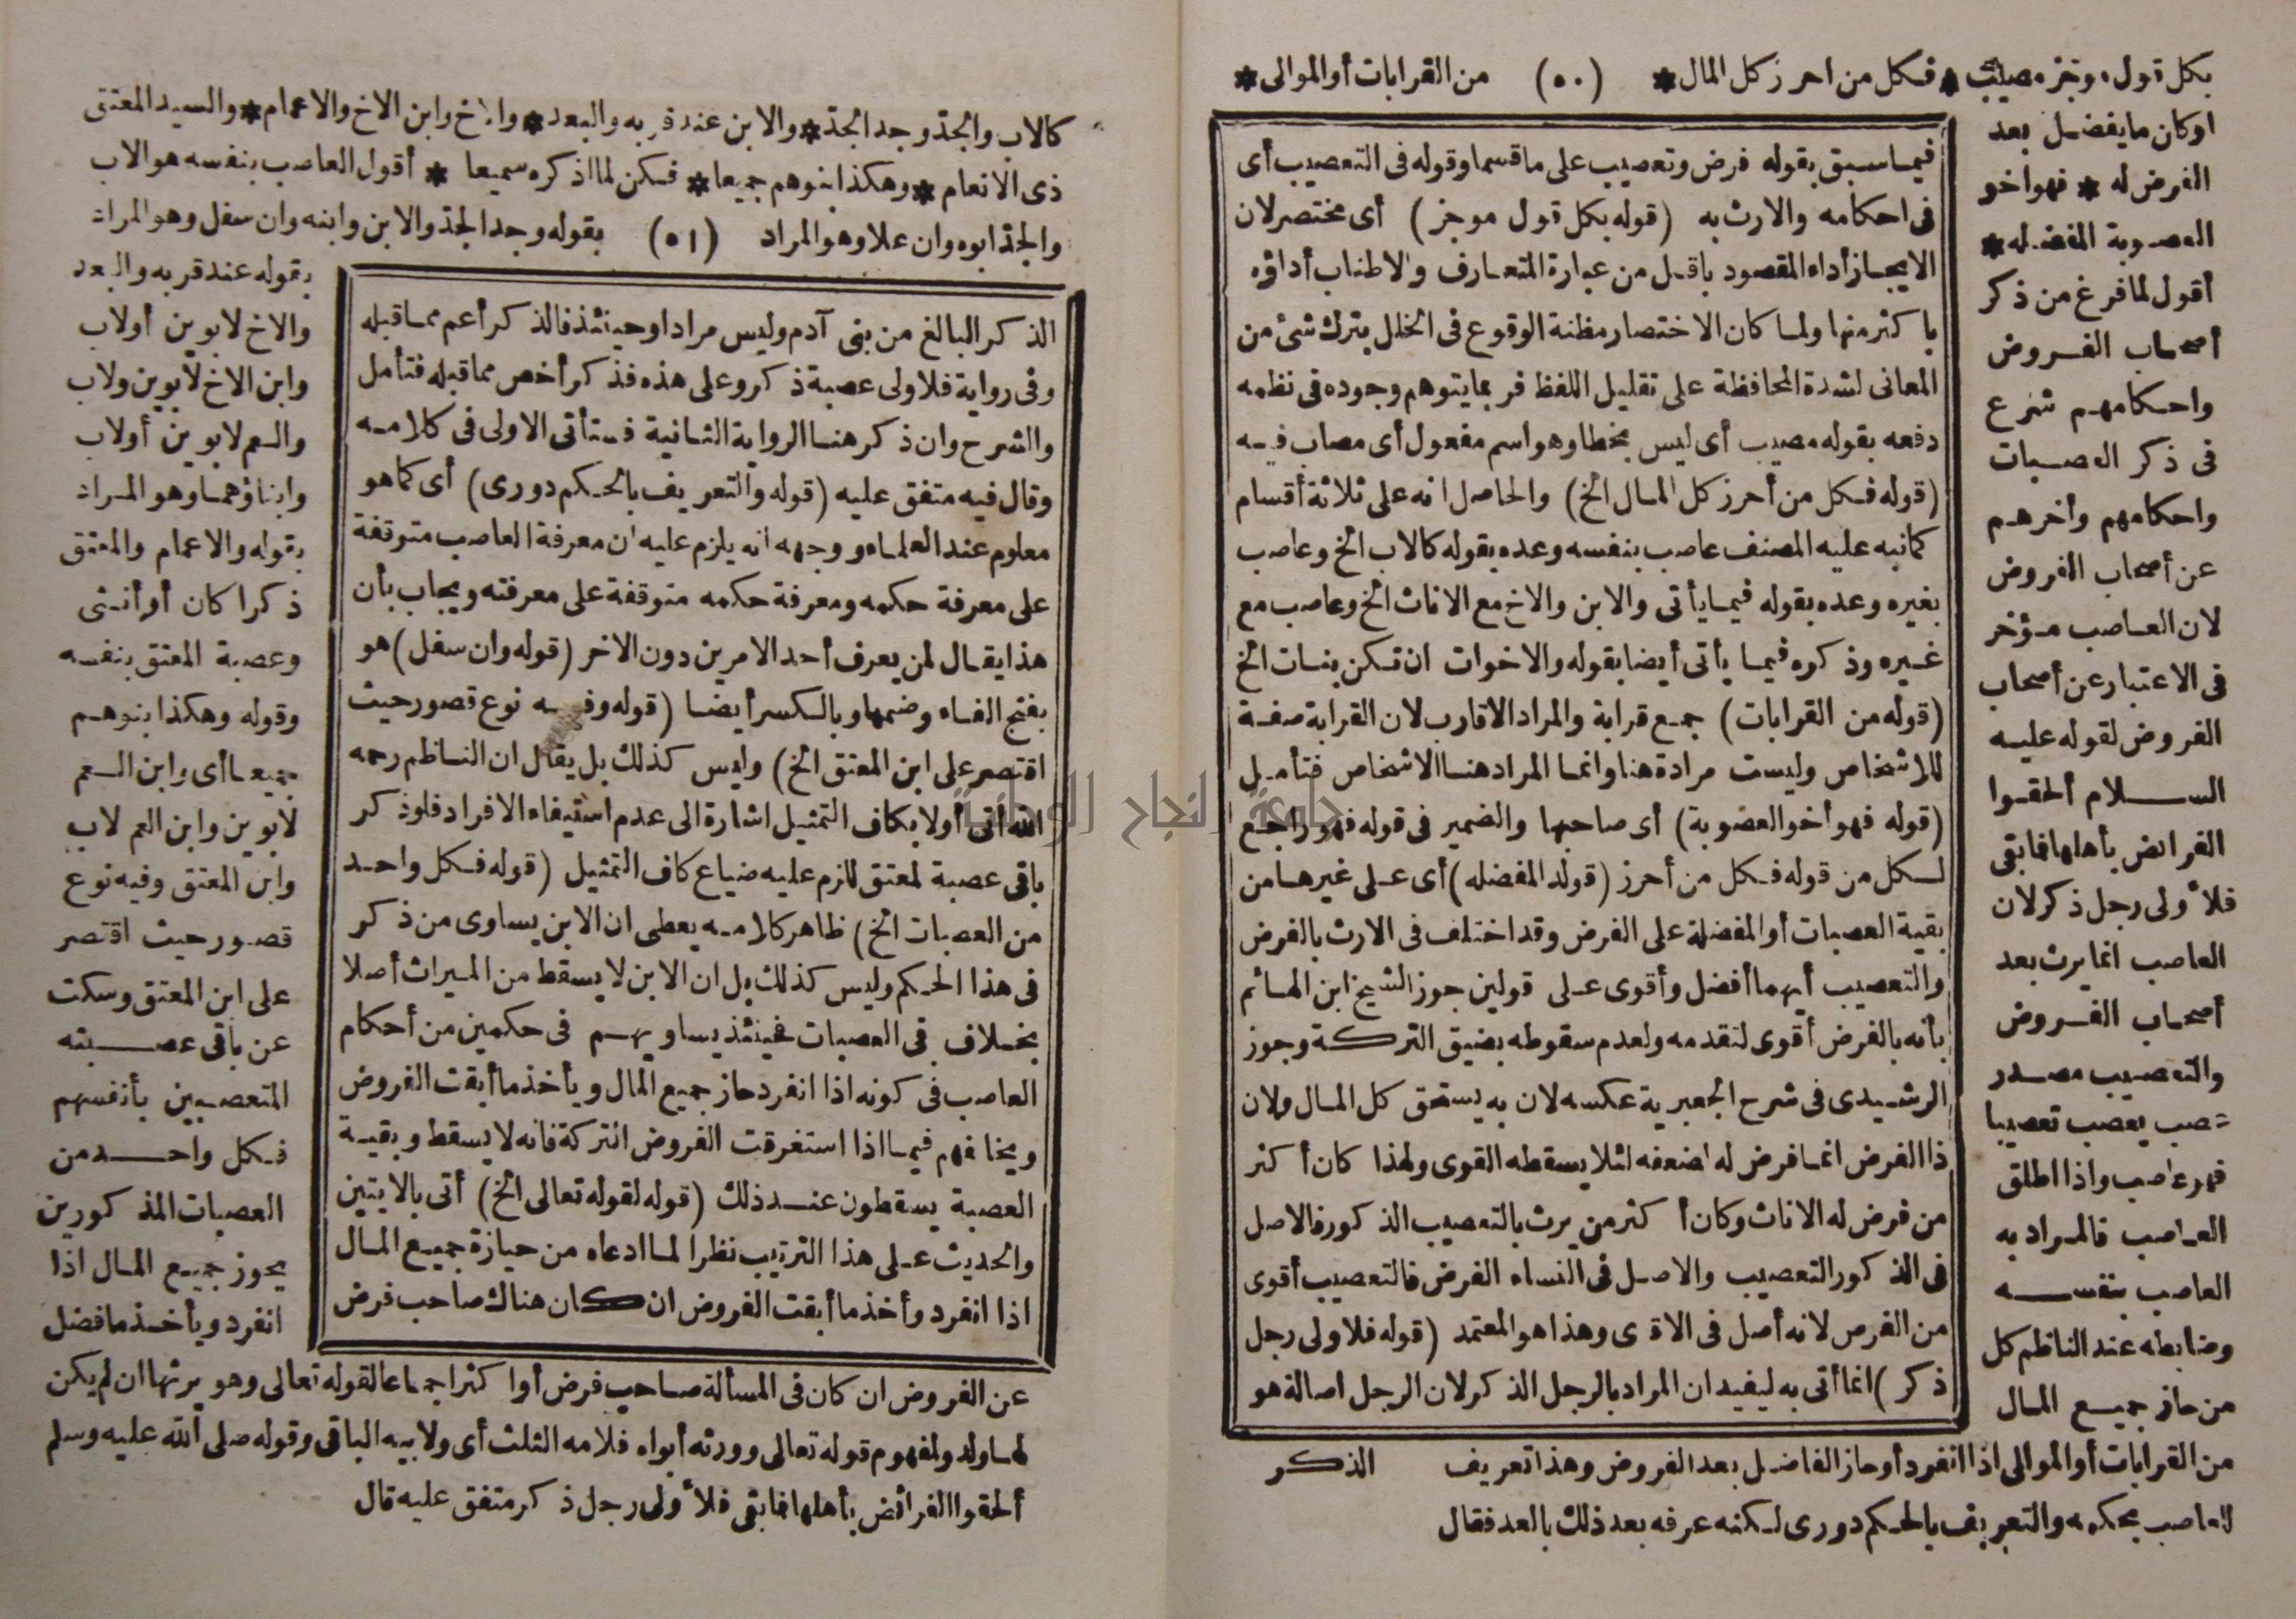 بكل قول موجز مصيب * فكل من احرز كل المال * (٥٠) من القرابات أو الموالى *
اوكان ما يفضل بعد
الفرض له * فهو اخو
العصوبة المفضله *
أقول لما فرغ من ذكر
أصحاب الفروض
واحكامهم شرع
فى ذكر العصبات
واحكامهم وأخرهم
عن أصحاب الفروض
لان العاصب مؤخر
فى الاعتبار عن أصحاب
الفروض لقوله عليه
السلام ألحقوا
الفرائض بأهلها فابقى
فلأولى رجل ذكر لان
العاصب انما يرث بعد
أصحاب الفروض
والتعصيب مصدر
عصب يعصب تعصيبا
فهو عاصب واذا اطلق
العاصب فالمراد به
العاصب بنفسه
وضابطه عند الناظم كل
من حاز جميع المال
من القرابات أو الموالى اذا انفرد أو حاز الفاضل بعد الفروض وهذا تعريف
للعاصب بحكمه والتعريف بالحكم دورى لكنه عرفه بعد ذلك بالعد فقال
فيما سبق بقوله فرض وتعصيب على ما قسما وقوله فى التعصيب أى
فى احكامه والارث به (قوله بكل قول موجز) أى مختصر لان
الايجاز أداء المقصود باقل من عبارة المتعارف والاطناب أداؤه
باكثر منها ولما كان الاختصار مظنة الوقوع فى الخلل بترك شئ من
المعانى لشدة المحافظة على تقليل اللفظ فربما يتوهم وجوده فى نظمه
دفعه بقوله مصيب أى ليس بخطا وهو اسم مفعول أى مصاب فيه
(قوله فكل من أحرز كل المال الخ) والحاصل انه على ثلاثة أقسام
كما نبه عليه المصنف عاصب بنفسه وعده بقوله كالاب الخ وعاصب
بغيره وعده بقوله فيما يأتى والابن والاخ مع الاناث الخ وعاصب مع
غيره وذكره فيما يأتى أيضا بقوله والاخوات ان تكن بنات الخ
(قوله من القرابات) جمع قرابة والمراد الاقارب لان القرابة صفة
للاشخاص وليست مرادة هنا وانما المراد هنا الاشخاص فتأمل
(قوله فهو أخو العصوبة) أى صاحبها والضمير فى قوله فهو راجع
لكل من قوله فكل من أحرز (قوله المفضله) أى على غيرها من
بقية العصبات أو المفضلة على الفرض وقد اختلف فى الارث بالفرض
والتعصيب أيهما أفضل وأقوى على قولين جوز الشيخ ابن الهائم
بأنه بالفرض أقوى لتقدمه ولعدم سقوطه بضيق التركة وجوز
الرشيدى فى شرح الجعبرية عكسه لان به يستحق كل المال ولان
ذا الفرض انما فرض له لضعفه لئلا يسقطه القوى ولهذا كان أكثر
من فرض له الاناث وكان أكثر من يرث بالتعصيب الذكور فالاصل
فى الذكور التعصيب والاصل فى النساء الفرض فالتعصيب أقوى
من الفرض لانه أصل فى الاقوى وهذا هو المعتمد (قوله فلاولى رجل
ذكر) انما أتى به ليفيد ان المراد بالرجل الذكر لان الرجل اصالة هو
الذكر
كالاب والجد وجد الجد * والابن عند قربه والبعد * والاخ وابن الاخ والاعمام * والسيد المعتق
ذى الانعام * وهكذا بنوهم جميعا * فكن لما اذكره سميعا * أقول العاصب بنفسه هو الاب
والجد ابوه وان علا وهو المراد (٥١) بقوله وجد الجد والابن وابنه وان سفل وهو المراد
بقوله عند قربه والبعد
والاخ لابوين أولاب
وابن الاخ لابوين ولاب
والعم لابوين أولاب
وابناؤهما وهو المراد
بقوله والاعمام والمعتق
ذكرا كان أو أنثى
وعصبة المعتق بنفسه
وقوله وهكذا بنوهم
جميعا أى وابن العم
لابوين وابن العم لاب
وابن المعتق وفيه نوع
قصور حيث اقتصر
على ابن المعتق وسكت
عن باقى عصبته
المتعصبين بأنفسهم
فكل واحد من
العصبات المذكورين
يحوز جميع المال اذا
انفرد ويأخذ ما فضل
عن الفروض ان كان فى المسألة صاحب فرض أو اكثر اجماعا لقوله تعالى وهو يرثها ان لم يكن
لها ولد ولمفهوم قوله تعالى وورثه أبواه فلامه الثلث أى ولابيه الباقى وقوله صلى الله عليه وسلم
ألحقوا الفرائض بأهلها فابقى فلأولى رجل ذكر متفق عليه قال
الذكر البالغ من بنى آدم وليس مرادا وحينئذ فالذكر أعم مما قبله
وفى رواية فلاولى عصبة ذكر وعلى هذه فذكر أخص مما قبله فتأمل
والشرح وان ذكر هنا الرواية الثانية فستأتى الاولى فى كلامه
وقال فيه متفق عليه (قوله والتعريف بالحكم دورى) أى كما هو
معلوم عند العلماء ووجهه انه يلزم عليه ان معرفة العاصب متوقفة
على معرفة حكمه ومعرفة حكمه متوقفة على معرفته ويجاب بأن
هذا يقال لمن يعرف أحد الامرين دون الاخر (قوله وان سفل) هو
بفتح الفاء وضمها وبالكسر أيضا (قوله وفيه نوع قصور حيث
اقتصر على ابن المعتق الخ) وليس كذلك بل يقال ان الناظم رحمه
الله أتى أولا بكاف التمثيل اشارة الى عدم استيفاء الافراد فلو ذكر
باقى عصبة المعتق للزم عليه ضياع كاف التمثيل (قوله فكل واحد
من العصبات الخ) ظاهر كلامه يعطى ان الابن يساوى من ذكر
فى هذا الحكم وليس كذلك بل ان الابن لا يسقط من الميراث أصلا
بخلاف باقى العصبات فحينئذ يساويهم فى حكمين من أحكام
العاصب فى كونه اذا انفرد حاز جميع المال ويأخذ ما أبقت الفروض
ويخالفهم فيما اذا استغرقت الفروض التركة فانه لا يسقط وبقية
العصبة يسقطون عند ذلك (قوله لقوله تعالى الخ) أتى بالايتين
والحديث على هذا الترتيب نظرا لما ادعاه من حيازة جميع المال
اذا انفرد وأخذ ما أبقت الفروض ان كان هناك صاحب فرض
جامعة النجاح الوطنية